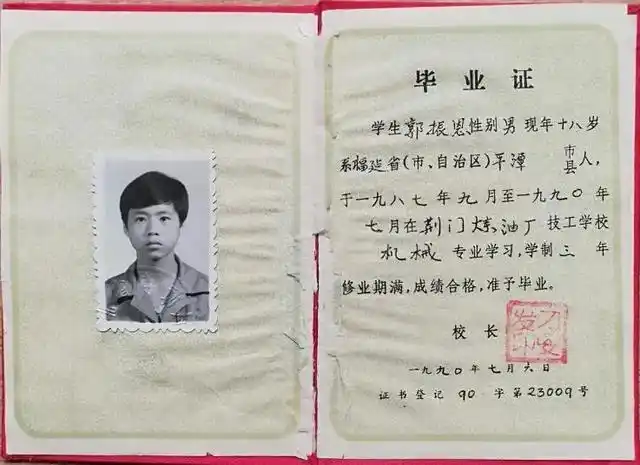 毕业证
学生郭振恩性别男现年十八岁
系福建省(市、自治区)平潭市县人,
于一九八七年九月至一九九〇年
七月在荆门炼油厂技工学校
机械专业学习,学制三年
修业期满,成绩合格,准予毕业。
校长
一九九〇年七月六日
证书登记90字第23009号